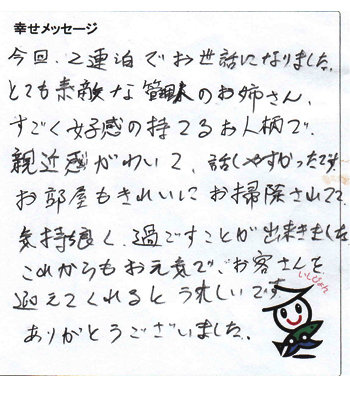 幸せメッセージ
今回、2連泊でお世話になりました。
とても素敵な管理人のお姉さん、
すごく好感の持てるお人柄で、
親近感がわいて、話しやすかったです
お部屋もきれいにお掃除されてて
気持良く、過ごすことが出来きました
これからもお元気で、お客さんを
迎えてくれるとうれしいです
ありがとうございました。